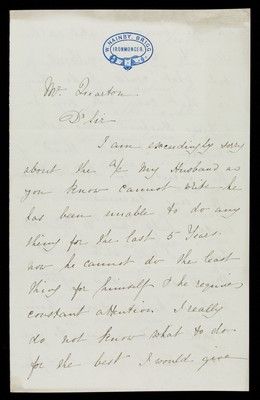 W. HAINBY, BRIGG
IRONMONGER
Mr. Quarton
Dr Sir
I am exceedingly sorry
about the a/c My Husband as
you know cannot write he
has been unable to do any
thing for the last 5 Years
now he cannot do the least
thing for himself & he requires
constant attention I really
do not know what to do
for the best I would give